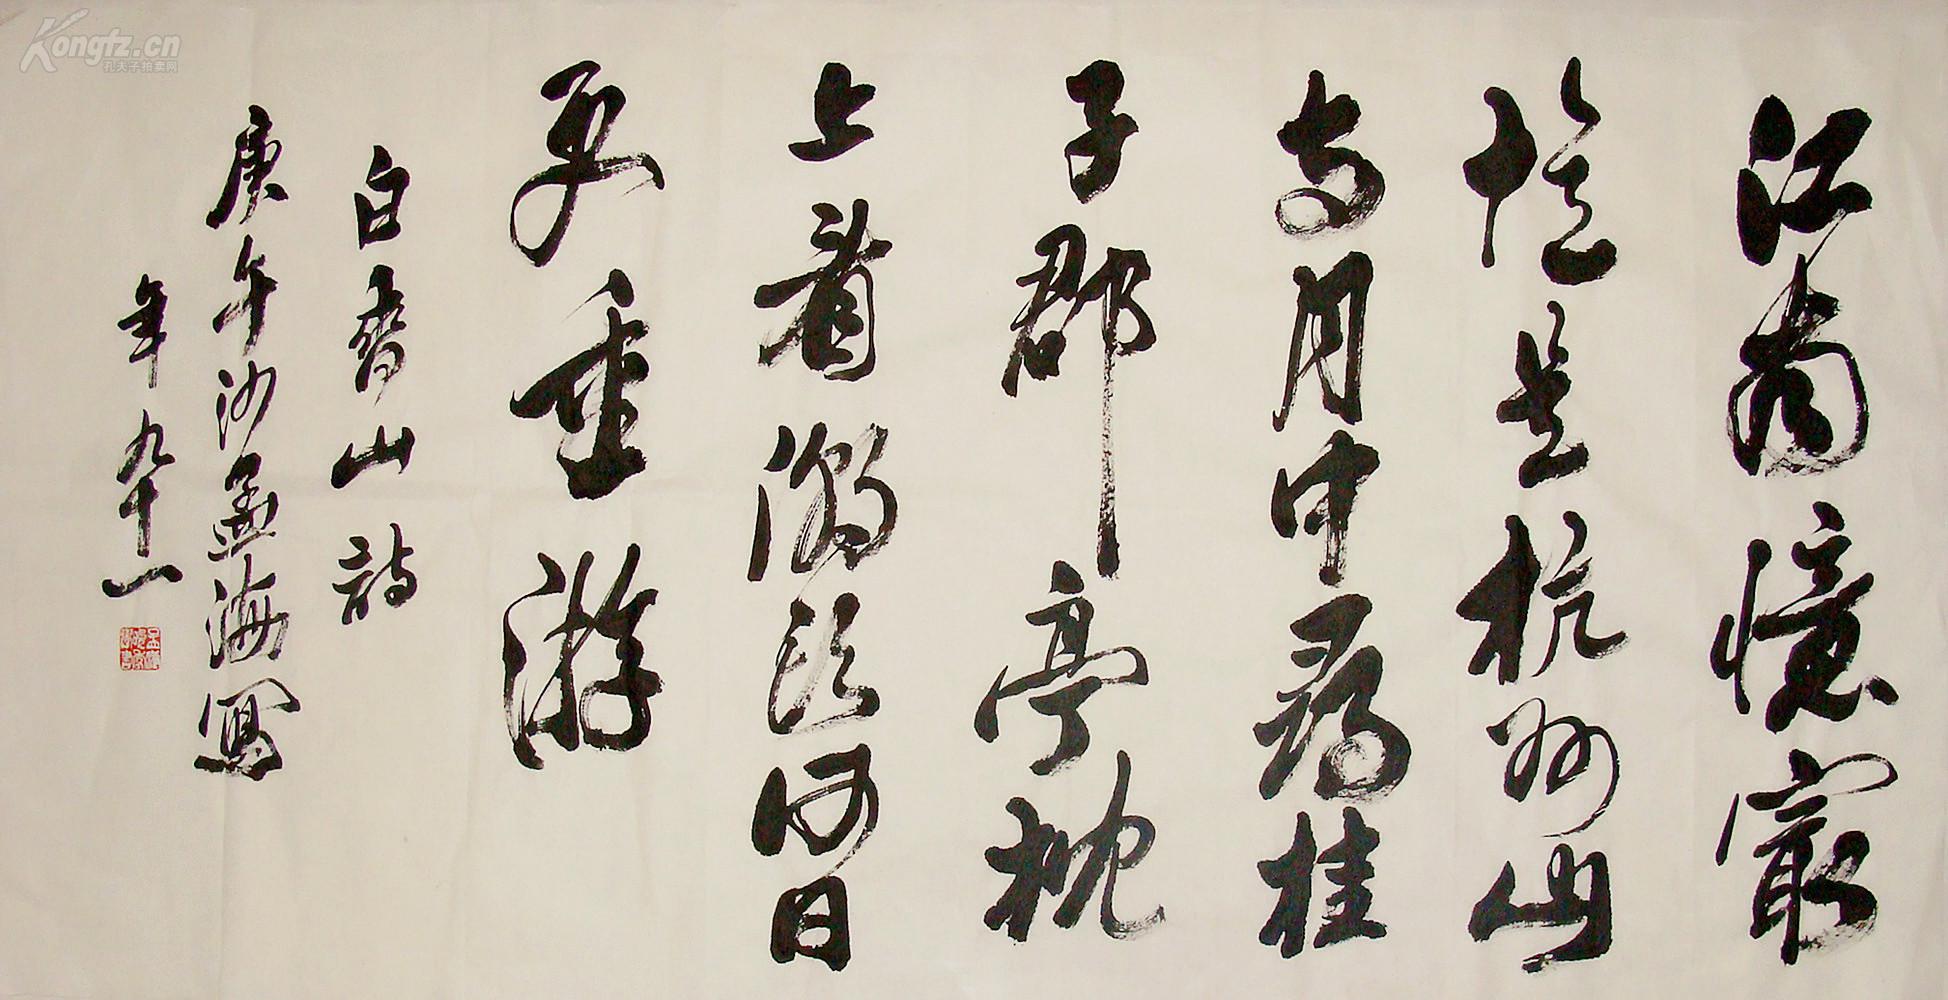 江南憶最
憶是杭州山
寺月中尋桂
子郡亭枕
上看潮頭何日
更重游
白香山詩
庚午沙孟海寫
年九十一
Kongfz.cn
孔夫子拍卖网